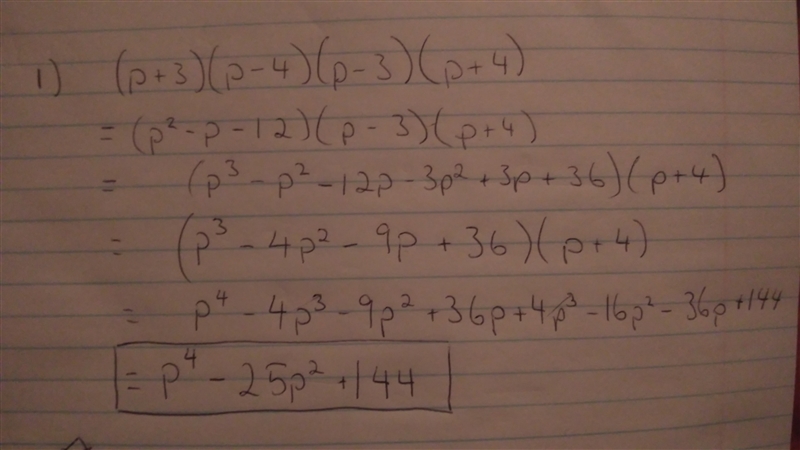 1) (p+3)(p-4)(p-3)(p+4)
= (p² - p - 12)(p - 3)(p+4)
= (p³ - p² - 12p - 3p² + 3p + 36)(p+4)
= (p³ - 4p² - 9p + 36)(p+4)
= p⁴ - 4p³ - 9p² + 36p + 4p³ - 16p² - 36p + 144
= p⁴ - 25p² + 144